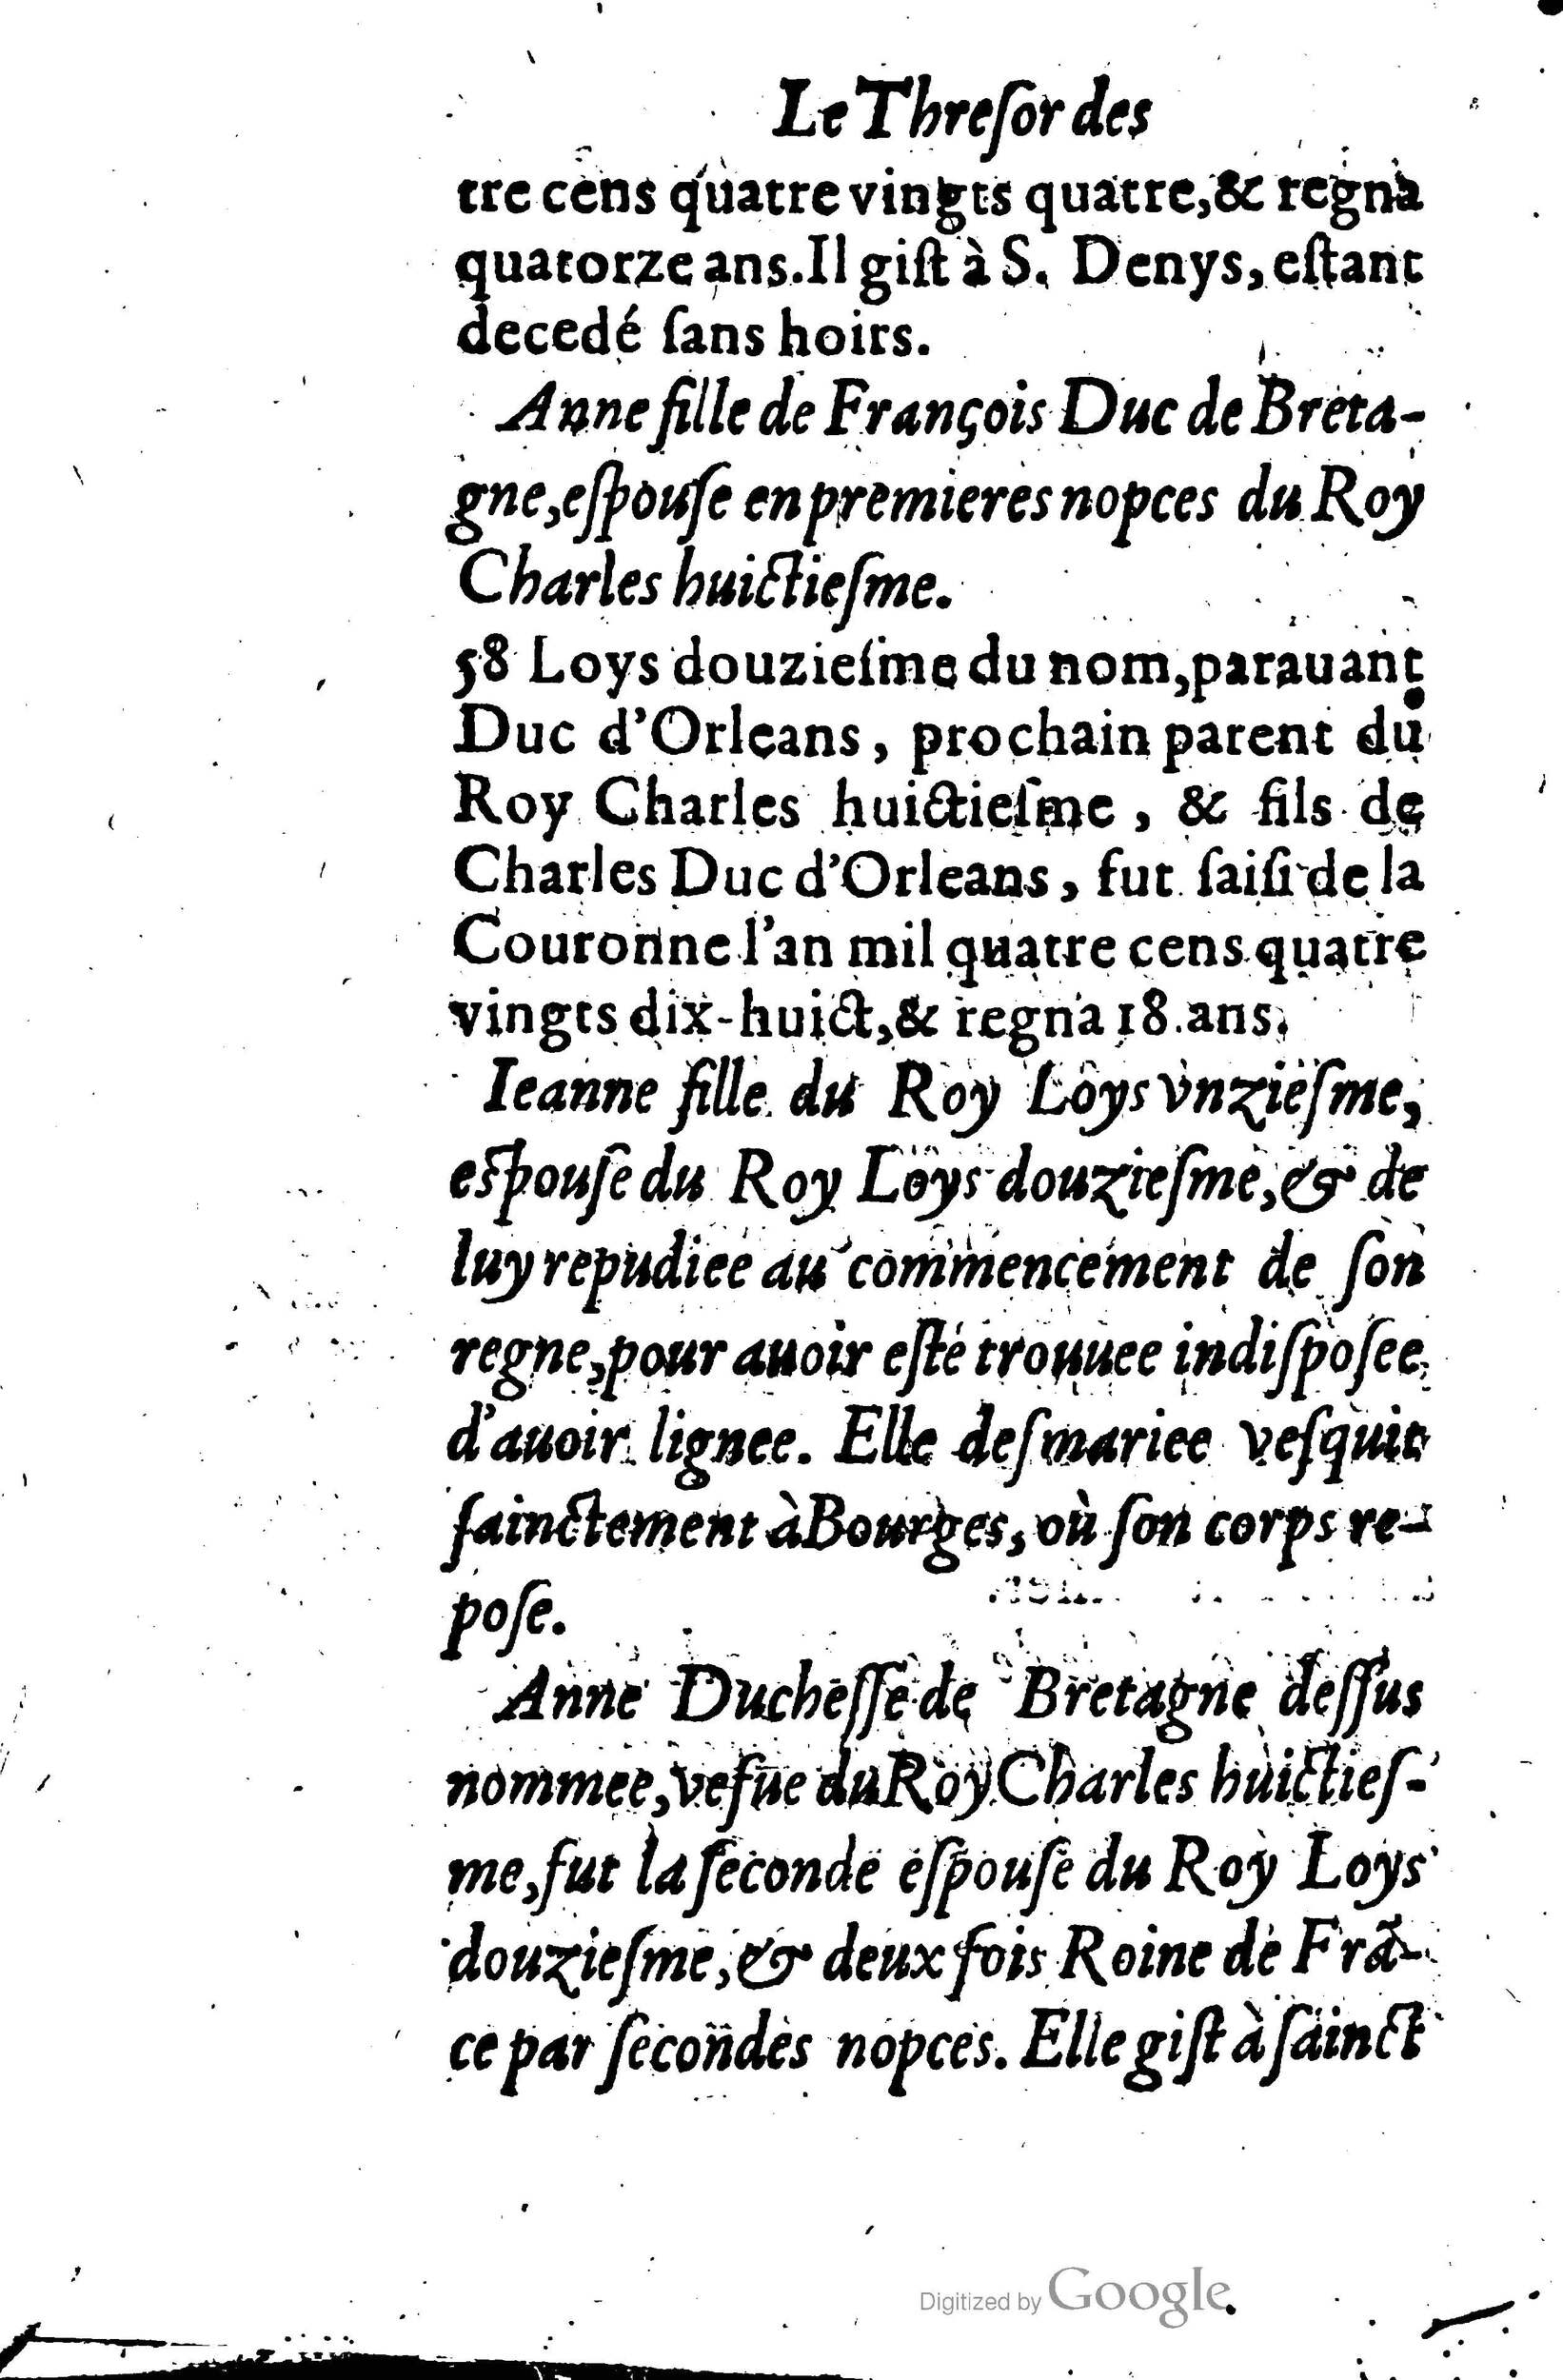 Le Threſor des
tre cens quatre vingts quatre, & regna
quatorze ans. Il giſt à S. Denys, eſtant
decedé ſans hoirs.
Anne fille de François Duc de Breta-
gne, eſpouſe en premieres nopces du Roy
Charles huictieſme.
58 Loys douzieſme du nom, parauant
Duc d'Orleans, prochain parent du
Roy Charles huictieſme, & fils de
Charles Duc d'Orleans, fut ſaiſi de la
Couronne l'an mil quatre cens quatre
vingts dix-huict, & regna 18. ans.
Ieanne fille du Roy Loys vnzieſme,
eſpouſe du Roy Loys douzieſme, & de
luy repudiee au commencement de ſon
regne, pour auoir eſté trouuee indiſpoſee
d'auoir lignee. Elle deſmariee veſquit
ſainctement à Bourges, où ſon corps re-
poſe.
Anne Ducheſſe de Bretagne deſſus
nommee, vefue du Roy Charles huictieſ-
me, fut la ſeconde eſpouſe du Roy Loys
douzieſme, & deux fois Roine de Frã-
ce par ſecondes nopces. Elle giſt à ſainct
Digitized by Google